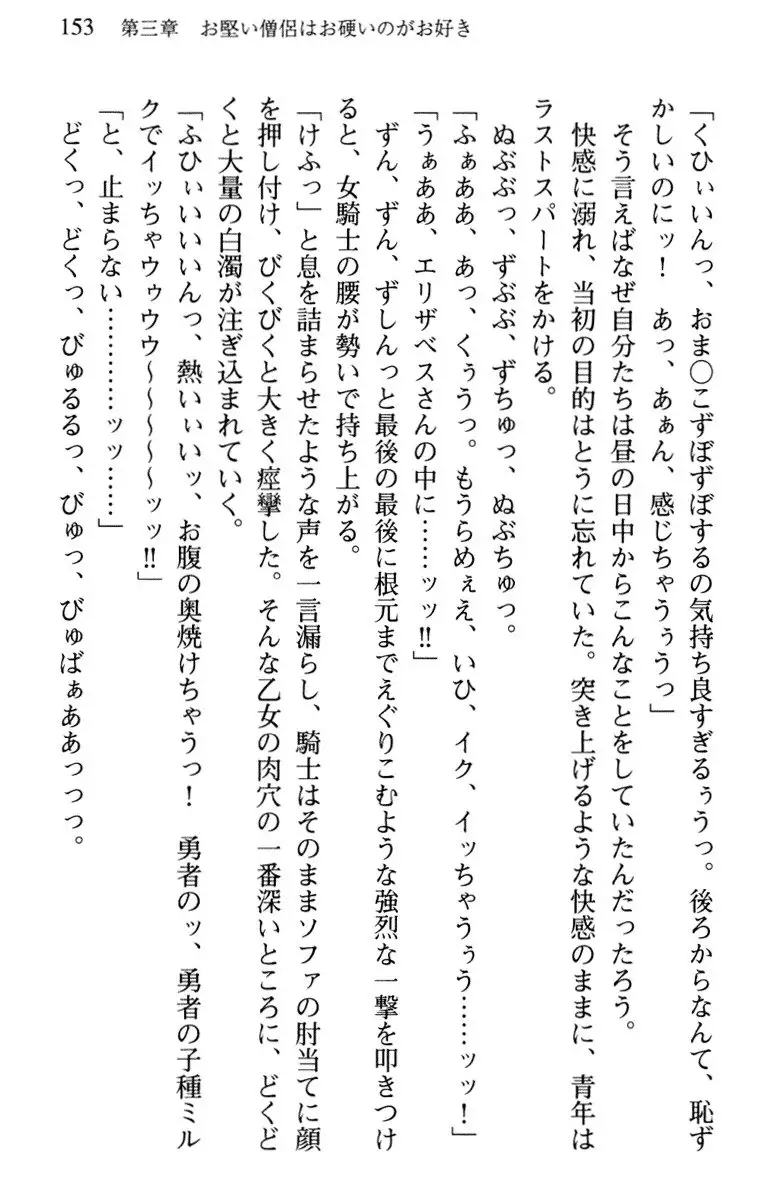 153　第三章　お堅い僧侶はお硬いのがお好き
「くひぃいんっ、おま〇こずぼずぼするの気持ち良すぎるぅうっ。後ろからなんて、恥ず
かしいのにッ！　あっ、あぁん、感じちゃうぅうっ」
そう言えばなぜ自分たちは昼の日中からこんなことをしていたんだったろう。
快感に溺れ、当初の目的はとうに忘れていた。突き上げるような快感のままに、青年は
ラストスパートをかける。
ぬぶぶっ、ずぶぶ、ずちゅっ、ぬぶちゅっ。
「ふぁああ、あっ、くぅうっ。もうらめぇえ、いひ、イク、イッちゃうぅう……ッッ！」
「うぁああ、エリザベスさんの中に……ッッ‼」
ずん、ずん、ずしんっと最後の最後に根元までえぐりこむような強烈な一撃を叩きつけ
ると、女騎士の腰が勢いで持ち上がる。
「けふっ」と息を詰まらせたような声を一言漏らし、騎士はそのままソファの肘当てに顔
を押し付け、びくびくと大きく痙攣した。そんな乙女の肉穴の一番深いところに、どくど
くと大量の白濁が注ぎ込まれていく。
「ふひぃいいいんっ、熱いぃいッ、お腹の奥焼けちゃうっ！　勇者のッ、勇者の子種ミル
クでイッちゃウゥウウ～～～～～ッッ‼」
「と、止まらない…………ッッ……」
どくっ、どくっ、びゅるるっ、びゅっ、びゅばぁああっっっ。